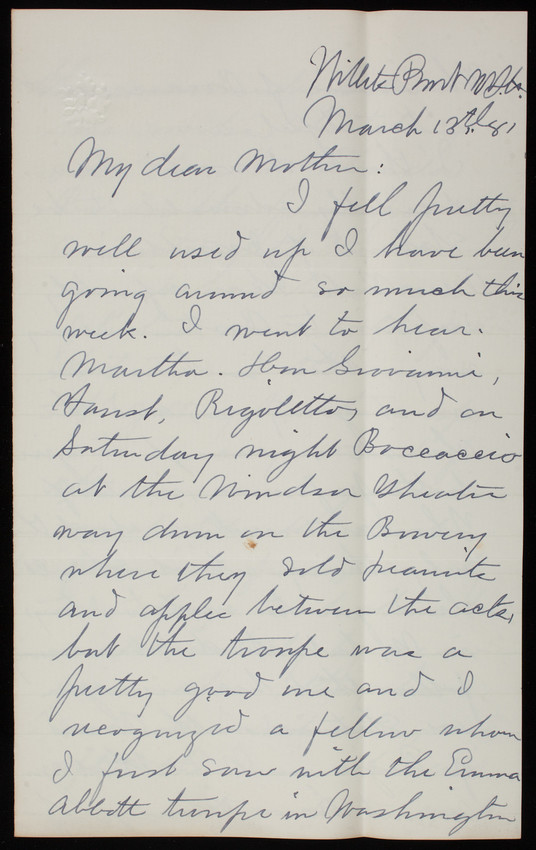 Willets Point N.Y.
March 13th, 81
My dear Mother:
I fell pretty
well used up I have been
going around so much this
week. I went to hear.
Martha. Don Giovanni,
Faust, Rigoletto, and on
Saturday night Boccaccio
at the Windsor Theatre
way down on the Bowery
where they sold peanuts
and apples between the acts,
but the troupe was a
pretty good one and I
recognized a fellow whom
I first saw with the Emma
Abbott troupe in Washington